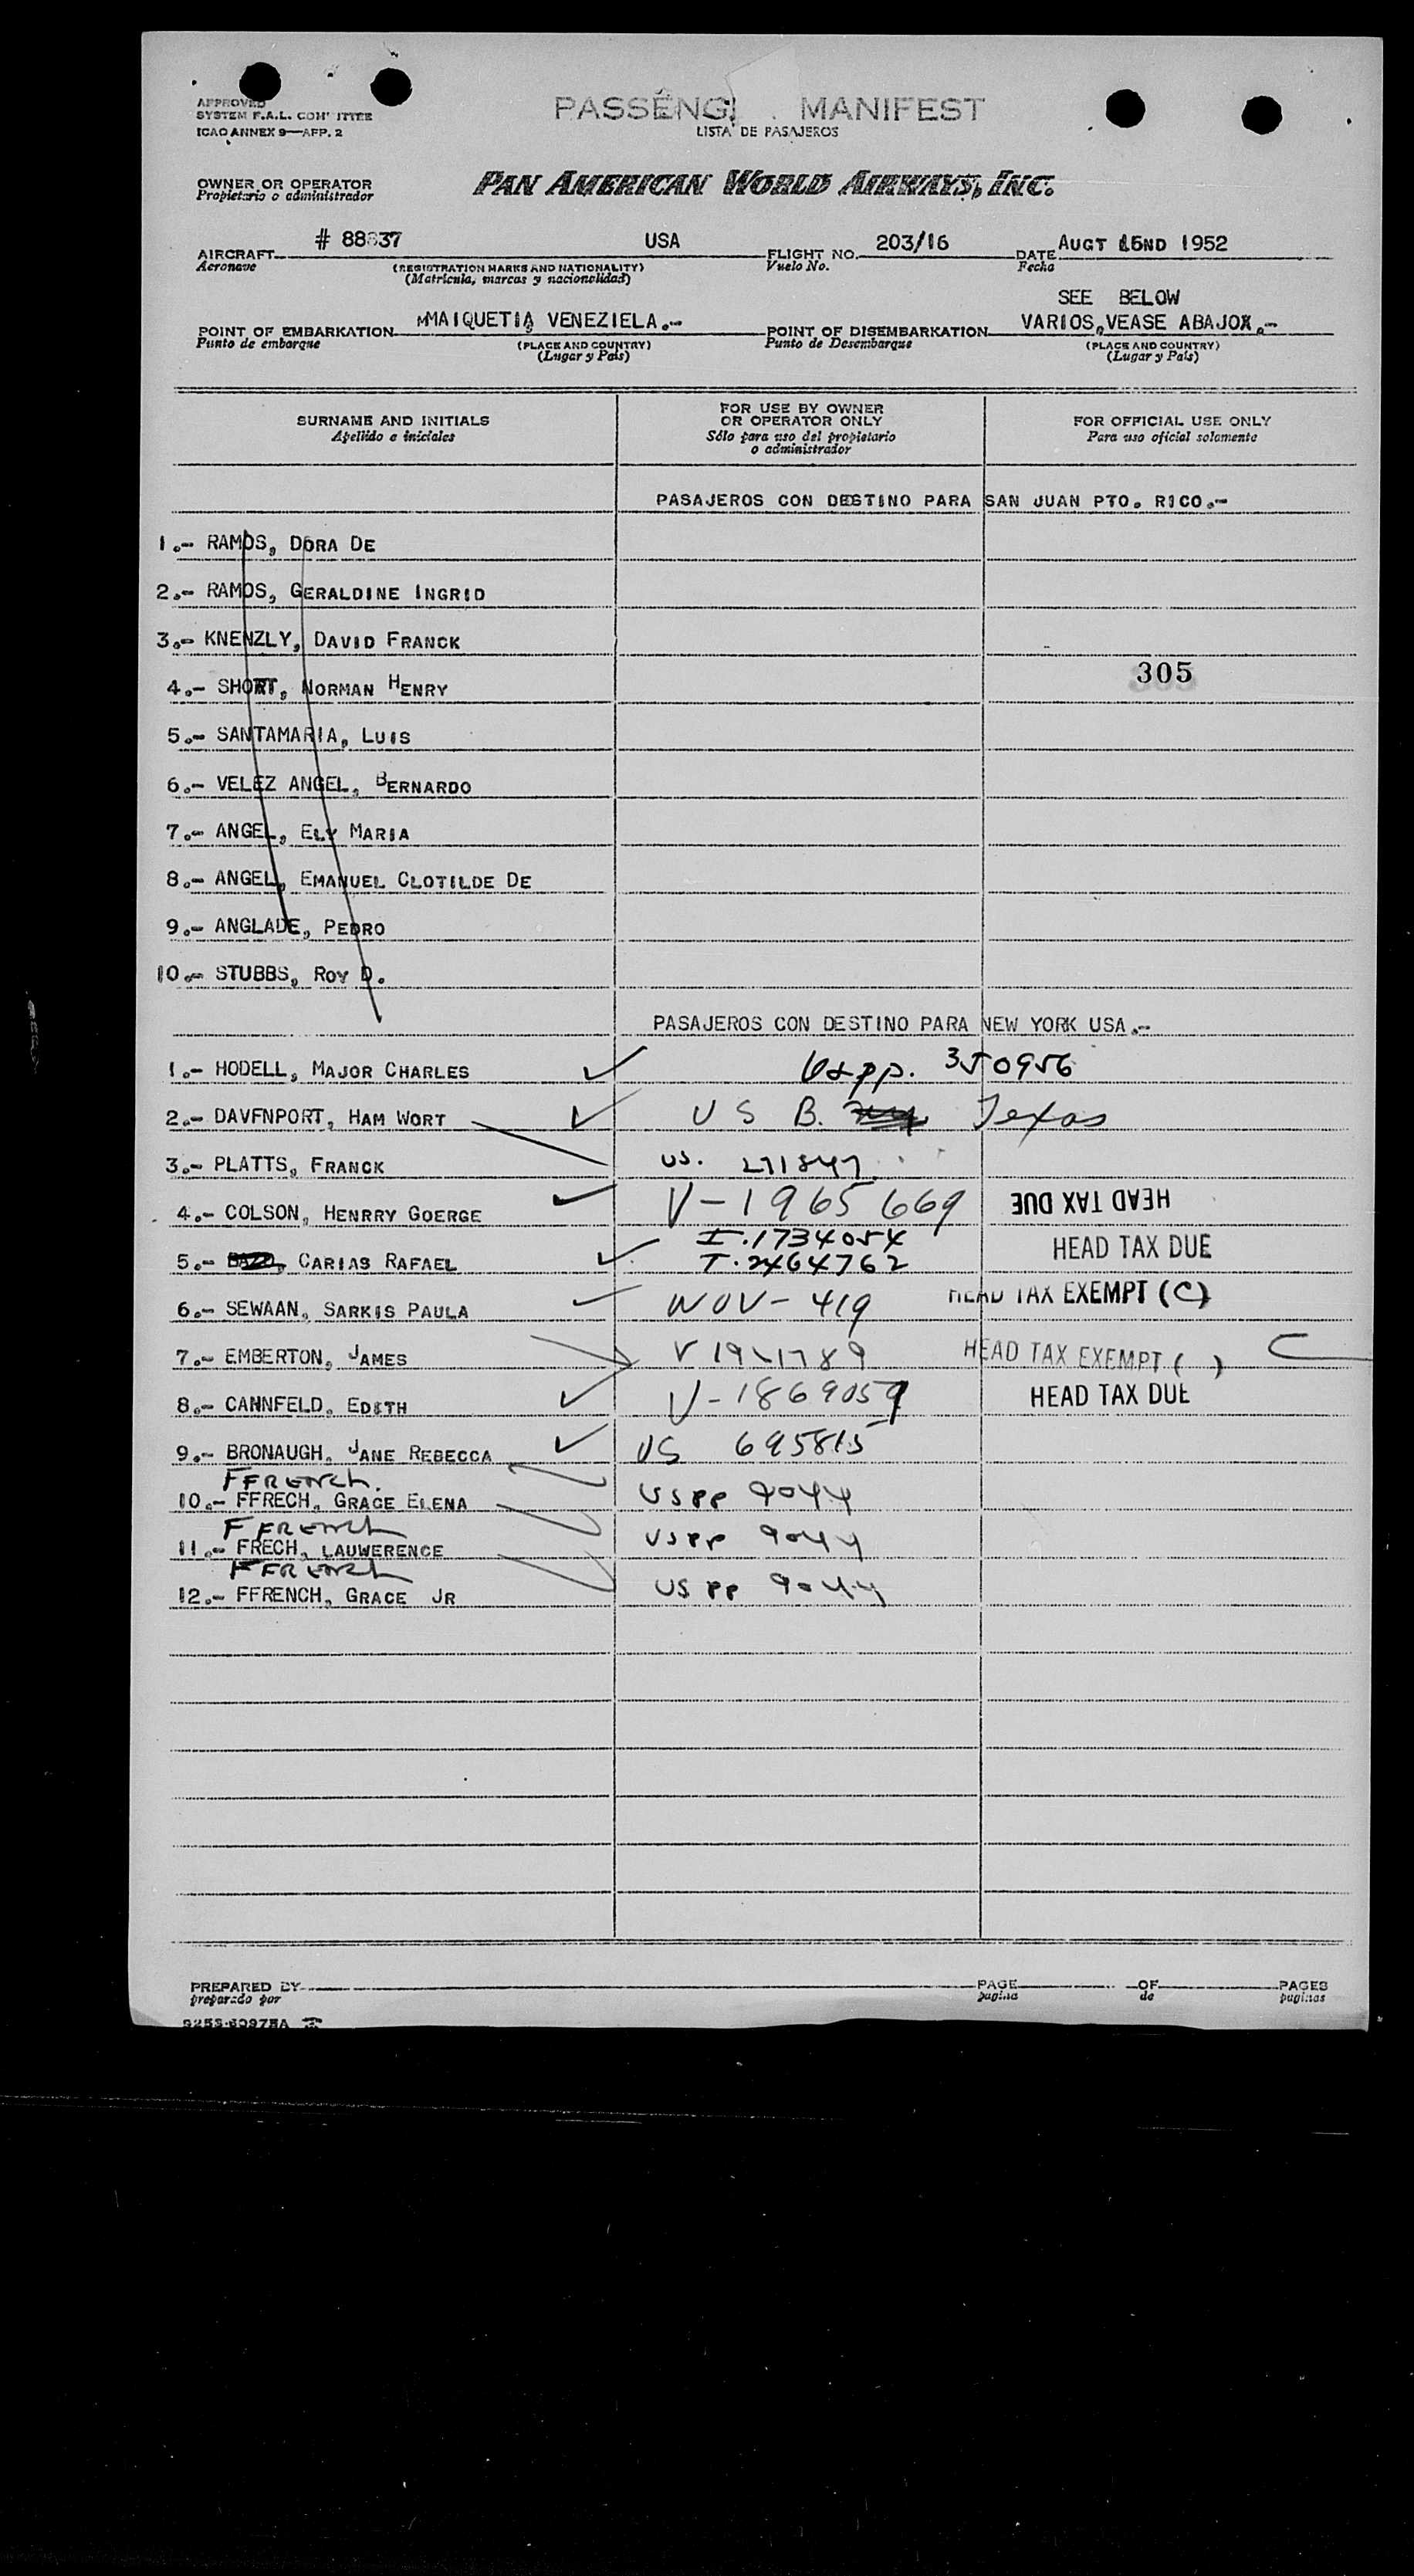 APPROVED
SYSTEM F.A.L. COM' ITTEE
ICAO ANNEX 9—APP. 2
PASSENG MANIFEST
LISTA DE PASAJEROS
OWNER OR OPERATOR
Propietario o administrador
PAN AMERICAN WORLD AIRWAYS, INC.
AIRCRAFT # 88837 USA FLIGHT NO. 203/16 DATE AUGT 15ND 1952
Aeronave (REGISTRATION MARKS AND NATIONALITY) Vuelo No. Fecha
(Matricula, marcas y nacionalidad)
SEE BELOW
POINT OF EMBARKATION MMAIQUETIA VENEZIELA.- POINT OF DISEMBARKATION VARIOS,VEASE ABAJOX.-
Punto de embarque (PLACE AND COUNTRY) Punto de Desembarque (PLACE AND COUNTRY)
(Lugar y País) (Lugar y País)
SURNAME AND INITIALS FOR USE BY OWNER OR OPERATOR ONLY FOR OFFICIAL USE ONLY
Apellido e iniciales Sólo para uso del propietario o administrador Para uso oficial solamente
PASAJEROS CON DESTINO PARA SAN JUAN PTO. RICO.-
1.- RAMOS, DORA DE
2.- RAMOS, GERALDINE INGRID
3.- KNENZLY, DAVID FRANCK
305
4.- SHORT, NORMAN HENRY
5.- SANTAMARIA, LUIS
6.- VELEZ ANGEL, BERNARDO
7.- ANGEL, ELY MARIA
8.- ANGEL, EMANUEL CLOTILDE DE
9.- ANGLADE, PEDRO
10.- STUBBS, ROY D.
PASAJEROS CON DESTINO PARA NEW YORK USA.-
1.- HODELL, MAJOR CHARLES Uspp. 350956
2.- DAVENPORT, HAM WORT U S B. Texas
3.- PLATTS, FRANCK US. 271847
4.- COLSON, HENRRY GOERGE V-1965669 HEAD TAX DUE
I.1734054
5.- CARIAS RAFAEL T.2464762 HEAD TAX DUE
6.- SEWAAN, SARKIS PAULA NOV-419 HEAD TAX EXEMPT (C)
7.- EMBERTON, JAMES V 1921789 HEAD TAX EXEMPT ( ) C
8.- CANNFELD, EDITH V-1869059 HEAD TAX DUE
9.- BRONAUGH, JANE REBECCA US 695815
FFRENCH.
10.- FFRECH, GRACE ELENA USPP 9044
FFRENCH
11.- FRECH, LAUWERENCE USPP 9044
FFRENCH
12.- FFRENCH, GRACE JR US PP 9044
PREPARED BY PAGE OF PAGES
preparado por pagina de paginas